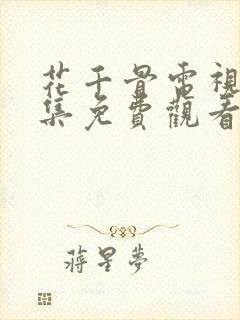 花千骨電視
集免費觀看
蔣星夢